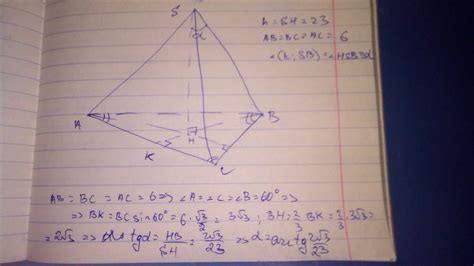 S
α
h = SH = 23
AB=BC=AC=6
∠(h, SB)=∠HSB=α
A
B
H
K
C
AB = BC = AC = 6 => ∠A=∠C=∠B=60° =>
=> BK=BC sin60° = 6·√3/2 = 3√3; BH=2/3 BK=2/3·3√3=
=2√3 => tgα=HB/SH=2√3/23 => α=arctg 2√3/23